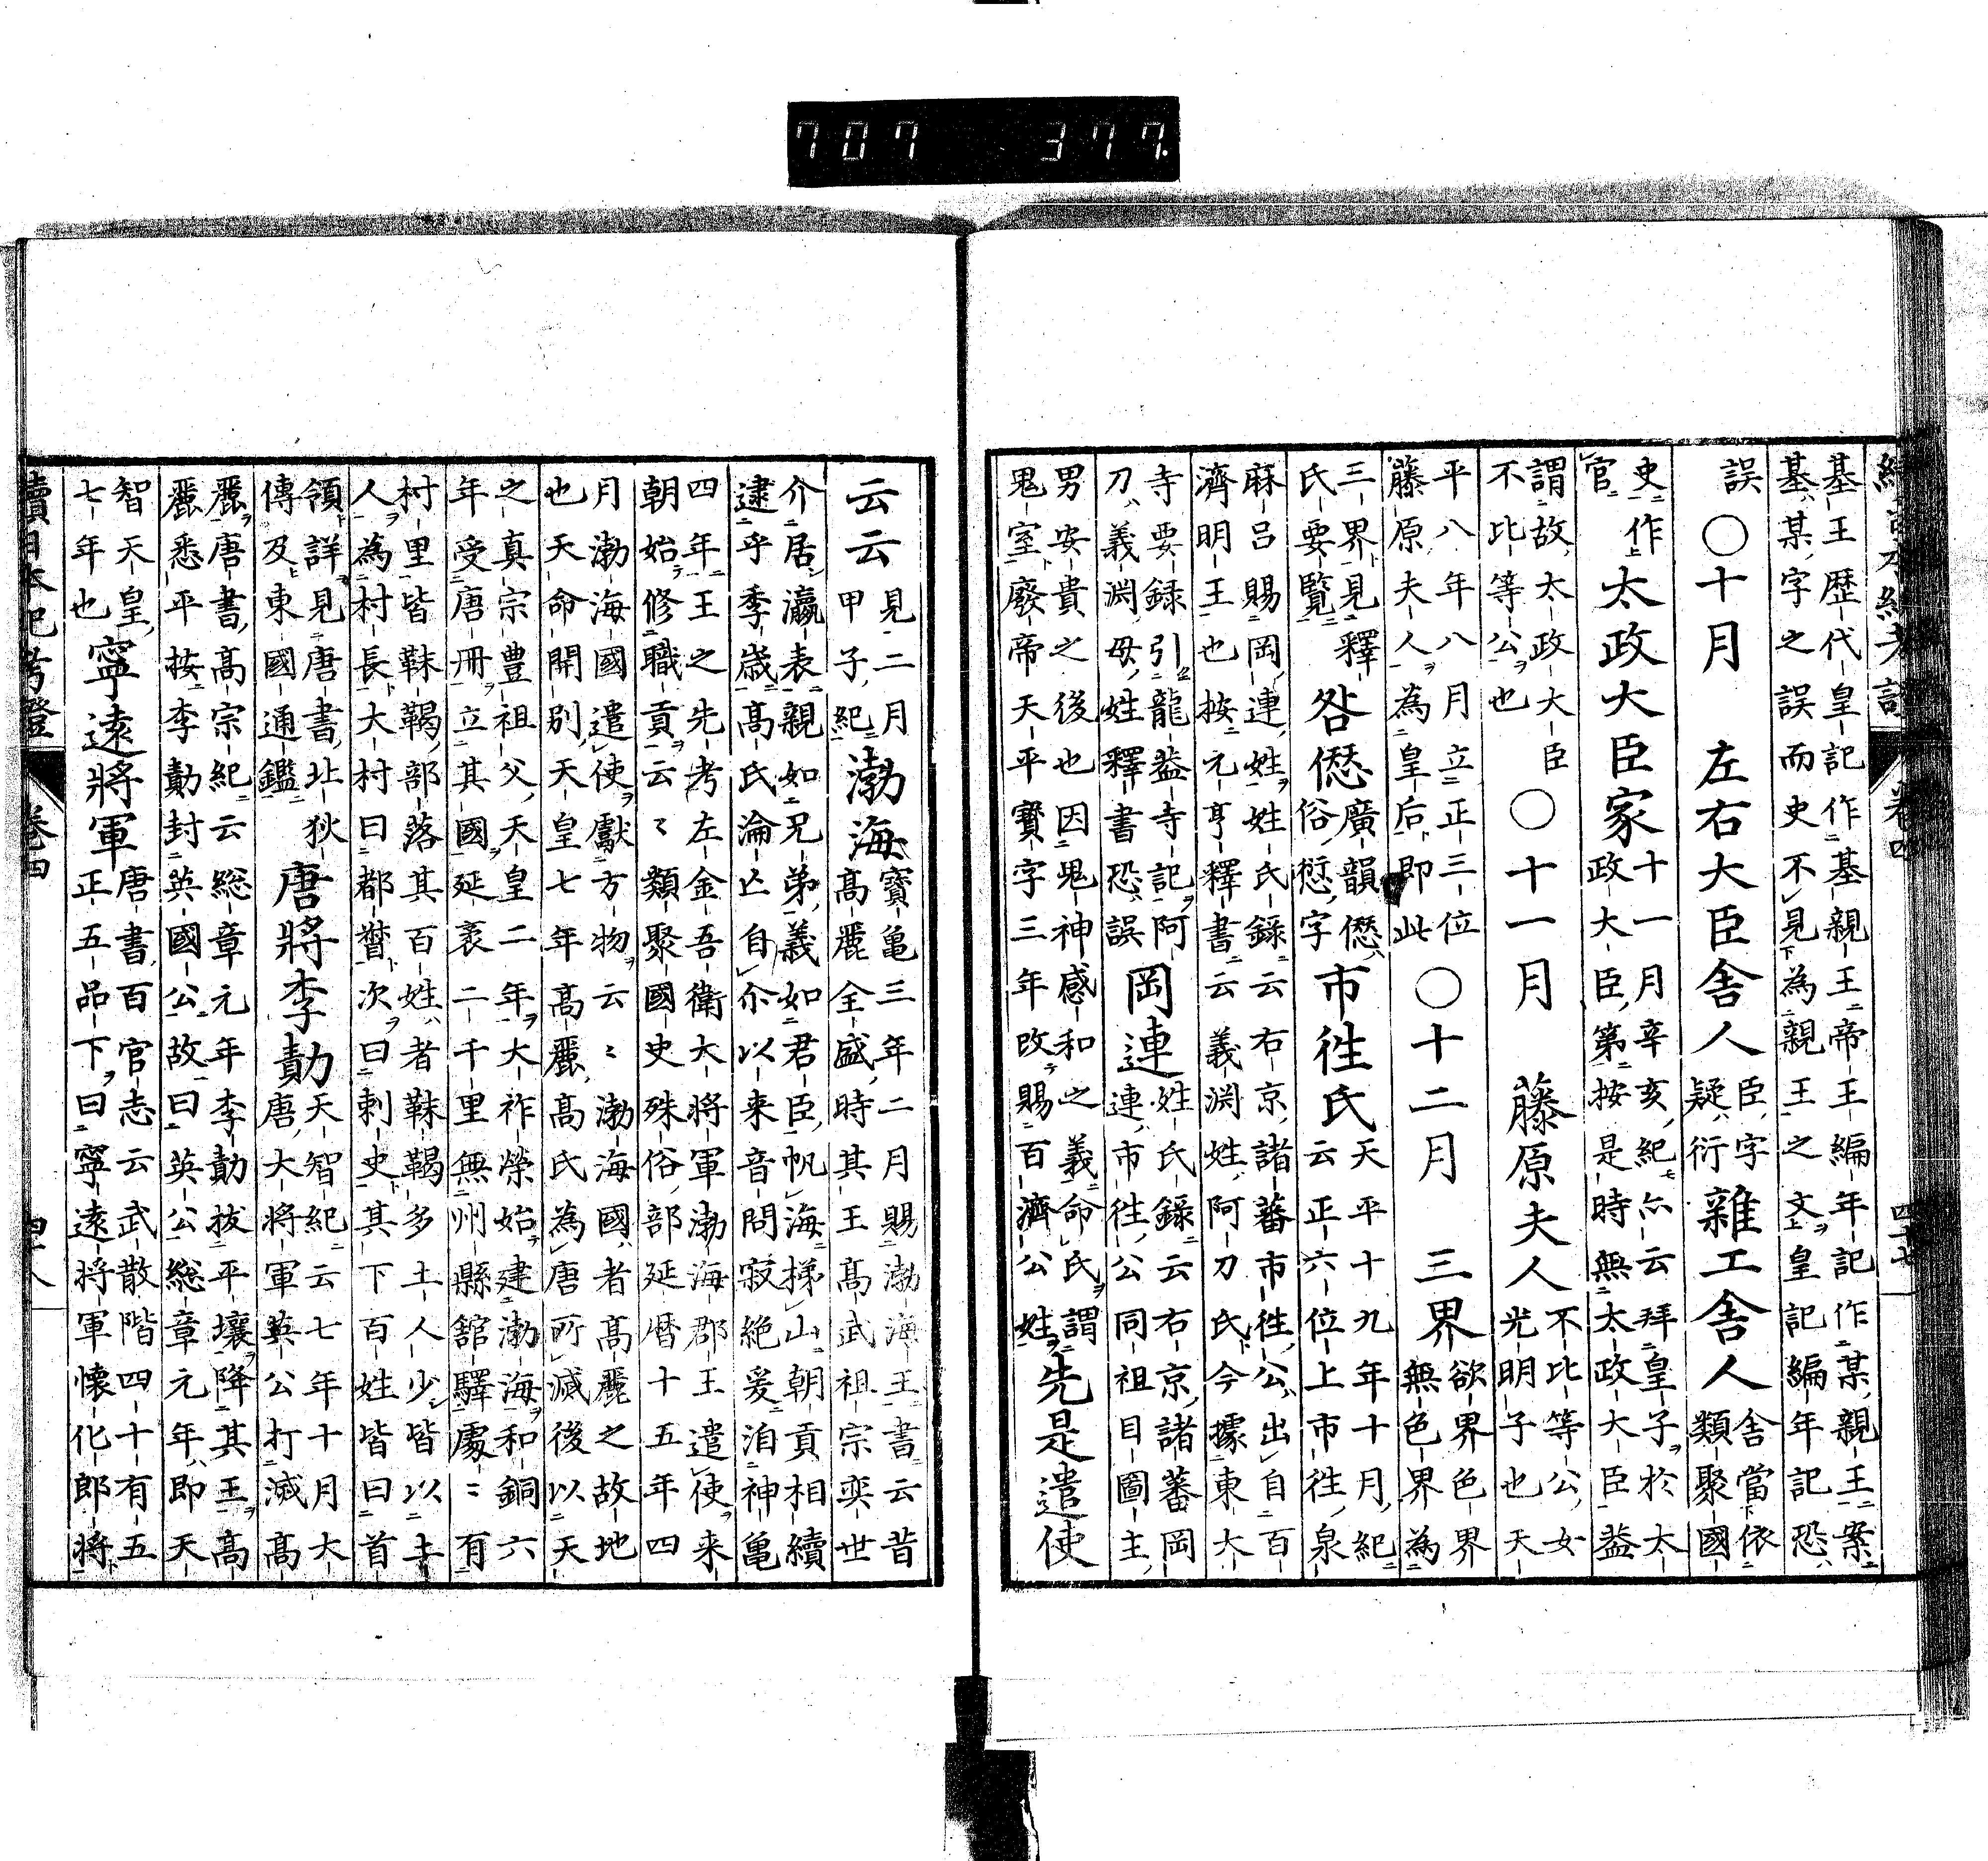 707 377.
續日本紀考證 卷四 四十七
基王歴代皇記作基親王帝王編年記作某親王案
基某字之誤而史不見為親王之文皇記編年記恐
誤
○十月 左右大臣舍人
臣字
疑衍
雜工舍人
舍當依
類聚國
史作
官
太政大臣家
十一月辛亥紀亦云拜皇子於太
政大臣第按是時無太政大臣蓋
謂故太政大臣
不比等公也
○十一月 藤原夫人
不比等公女
光明子也天
平八年八月立正三位
藤原夫人為皇后即此
○十二月 三界
欲界色界
無色界為
三界見釋
氏要覽
咎𠎝
廣韻𠎝
俗愆字
市往氏
天平十九年十月紀
云正六位上市往泉
麻呂賜岡連姓姓氏錄云右京諸蕃市往公出自百
濟明王也按元亨釋書云義淵姓阿刀氏今據東大
寺要録引龍蓋寺記阿
刀義淵母姓釋書恐誤
岡連
姓氏錄云右京諸蕃岡
連市往公同祖目圖主
男安貴之後也因鬼神感和之義命氏謂
鬼室廢帝天平寶字三年改賜百濟公姓
先是遣使
云云
見二月
甲子紀
渤海
寶亀三年二月賜渤海王書云昔
高麗全盛時其王高武祖宗奕世
介居瀛表親如兄弟義如君臣帆海梯山朝貢相續
逮乎季歳高氏淪亡自尒以来音問寂絶爰洎神亀
四年王之先考左金吾衛大将軍渤海郡王遣使来
朝始修職貢云〻類聚國史殊俗部延暦十五年四
月渤海國遣使獻方物云〻渤海國者高麗之故地
也天命開別天皇七年高麗高氏為唐所滅後以天
之真宗豊祖父天皇二年大祚榮始建渤海和銅六
年受唐冊立其國延袤二千里無州縣舘驛處〻有
村里皆靺鞨部落其百姓者靺鞨多土人少皆以土
人為村長大村曰都督次曰刺史其下百姓皆曰首
領詳見唐書北狄
傳及東國通鑑
唐將李勣
天智紀云七年十月大
唐大將軍英公打滅高
麗唐書高宗紀云総章元年李勣拔平壤降其王高
麗悉平按李勣封英國公故曰英公総章元年即天
智天皇
七年也
寧遠將軍
唐書百官志云武散階四十有五
正五品下曰寧遠将軍懐化郎将
續日本紀考證 卷四 四十八